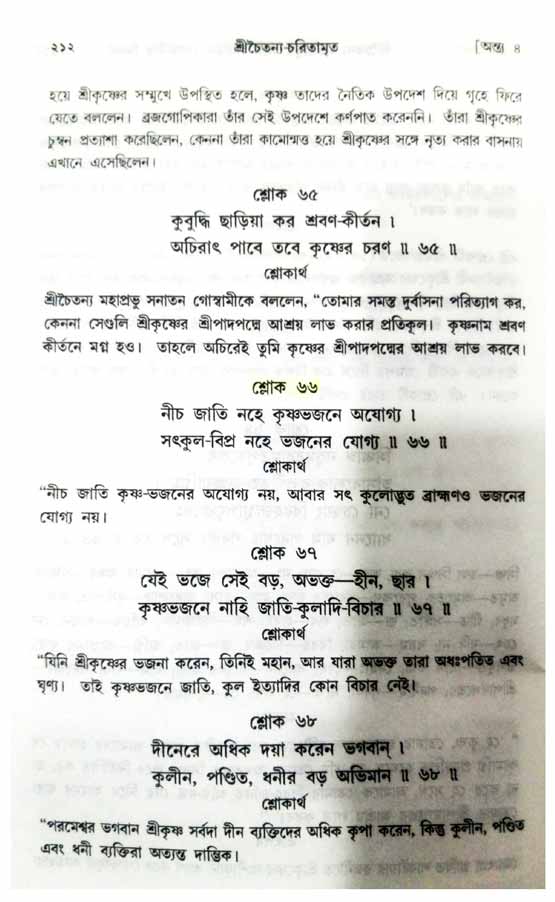 ২১২ শ্রীচৈতন্য-চরিতামৃত [অন্ত্য ৪
হয়ে শ্রীকৃষ্ণের সম্মুখে উপস্থিত হলে, কৃষ্ণ তাদের নৈতিক উপদেশ দিয়ে গৃহে ফিরে
যেতে বললেন। ব্রজগোপিকারা তাঁর সেই উপদেশে কর্ণপাত করেননি। তাঁরা শ্রীকৃষ্ণের
চুম্বন প্রত্যাশা করেছিলেন, কেননা তাঁরা কামোন্মত্ত হয়ে শ্রীকৃষ্ণের সঙ্গে নৃত্য করার বাসনায়
এখানে এসেছিলেন।
শ্লোক ৬৫
কুবুদ্ধি ছাড়িয়া কর শ্রবণ-কীর্তন ।
অচিরাৎ পাবে তবে কৃষ্ণের চরণ ॥ ৬৫ ॥
শ্লোকার্থ
শ্রীচৈতন্য মহাপ্রভু সনাতন গোস্বামীকে বললেন, “তোমার সমস্ত দুর্বাসনা পরিত্যাগ কর,
কেননা সেগুলি শ্রীকৃষ্ণের শ্রীপাদপদ্মে আশ্রয় লাভ করার প্রতিকূল। কৃষ্ণনাম শ্রবণ
কীর্তনে মগ্ন হও। তাহলে অচিরেই তুমি কৃষ্ণের শ্রীপাদপদ্মের আশ্রয় লাভ করবে।
শ্লোক ৬৬
নীচ জাতি নহে কৃষ্ণভজনে অযোগ্য ।
সৎকুল-বিপ্র নহে ভজনের যোগ্য ॥ ৬৬ ॥
শ্লোকার্থ
“নীচ জাতি কৃষ্ণ-ভজনের অযোগ্য নয়, আবার সৎ কুলোদ্ভূত ব্রাহ্মণও ভজনের
যোগ্য নয়।
শ্লোক ৬৭
যেই ভজে সেই বড়, অভক্ত—হীন, ছার ।
কৃষ্ণভজনে নাহি জাতি-কুলাদি-বিচার ॥ ৬৭ ॥
শ্লোকার্থ
“যিনি শ্রীকৃষ্ণের ভজনা করেন, তিনিই মহান, আর যারা অভক্ত তারা অধঃপতিত এবং
ঘৃণ্য। তাই কৃষ্ণভজনে জাতি, কুল ইত্যাদির কোন বিচার নেই।
শ্লোক ৬৮
দীনেরে অধিক দয়া করেন ভগবান্ ।
কুলীন, পণ্ডিত, ধনীর বড় অভিমান ॥ ৬৮ ॥
শ্লোকার্থ
“পরমেশ্বর ভগবান শ্রীকৃষ্ণ সর্বদা দীন ব্যক্তিদের অধিক কৃপা করেন, কিন্তু কুলীন, পণ্ডিত
এবং ধনী ব্যক্তিরা অত্যন্ত দাম্ভিক।